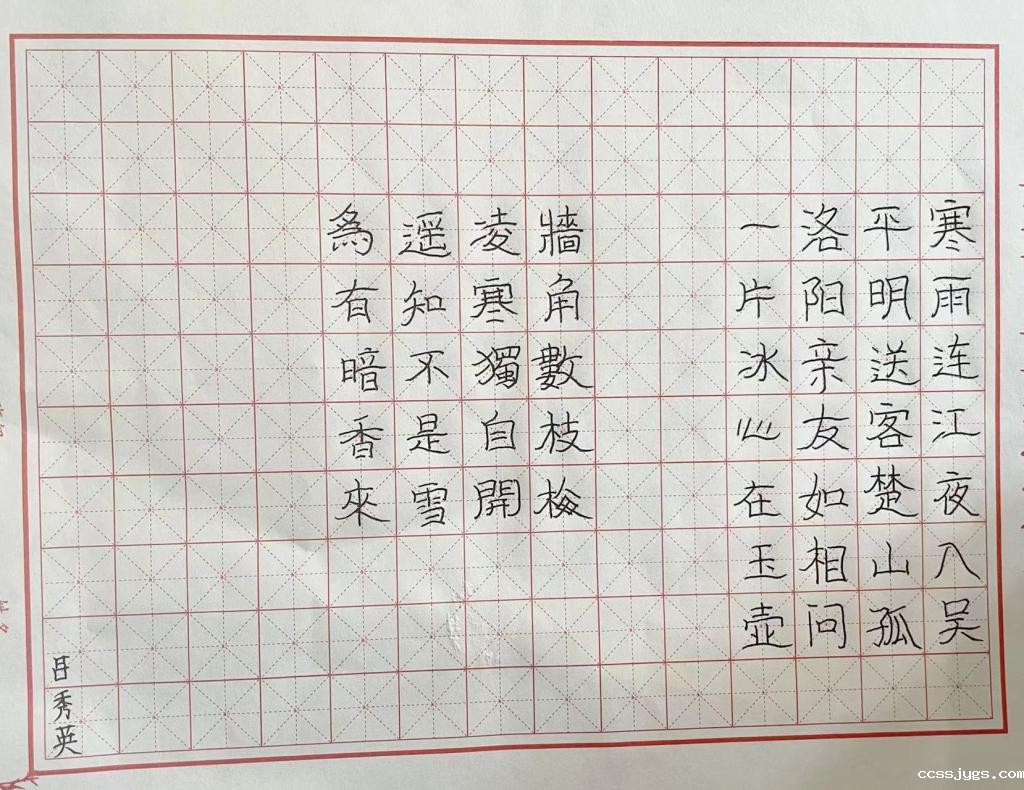 寒雨连江夜入吴
平明送客楚山孤
洛阳亲友如相问
一片冰心在玉壶
牆角數枝梅
凌寒獨自開
遥知不是雪
為有暗香來
秀英
ccssjygs.com